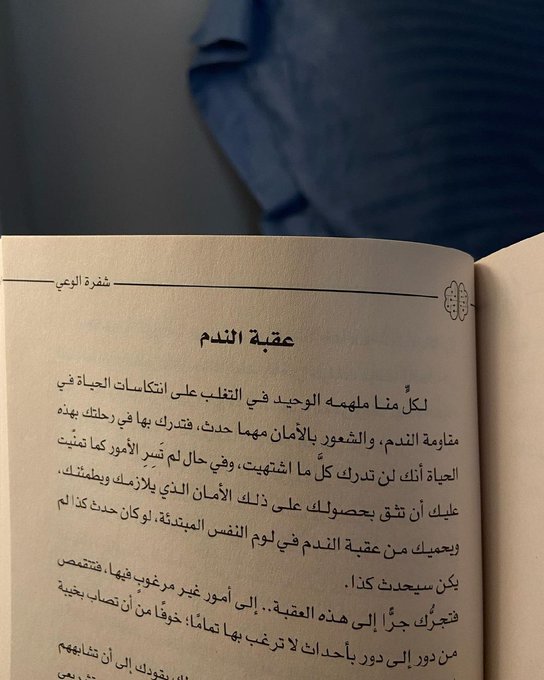 شفرة الوعي
عقبة الندم
لكلٍّ منا ملهمه الوحيد في التغلب على انتكاسات الحياة في
مقاومة الندم، والشعور بالأمان مهما حدث، فتدرك بها في رحلتك بهذه
الحياة أنك لن تدرك كلَّ ما اشتهيت، وفي حال لم تَسِرِ الأمور كما تمنَّيت
عليك أن تثق بحصولك على ذلك الأمان الذي يلازمك ويطمئنك،
ويحميك من عقبة الندم في لوم النفس المبتدئة، لو كان حدث كذا لم
يكن سيحدث كذا.
فتجرُّك جرًّا إلى هذه العقبة.. إلى أمور غير مرغوبٍ فيها، فتتقمص
من دور إلى دور بأحداث لا ترغب بها تمامًا؛ خوفًا من أن تصاب بخيبة
يقودك إلى أن تشابههم